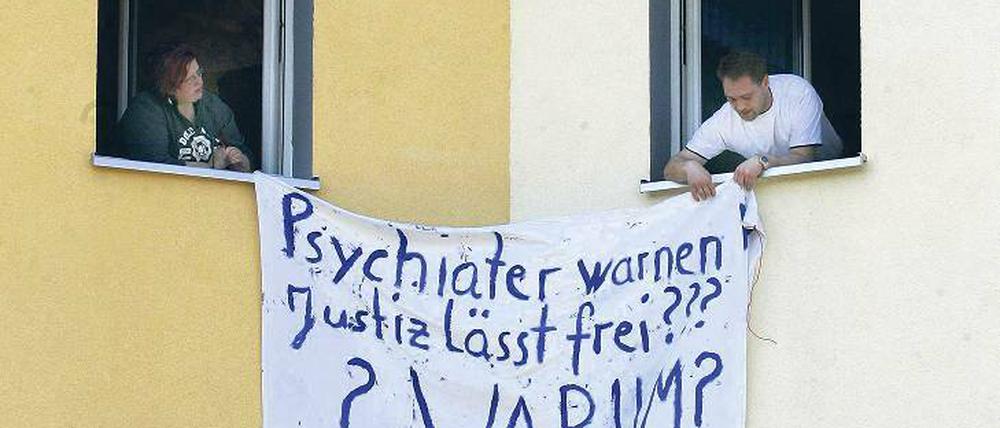 Psychiater warnen
Justiz lässt frei???
? WARUM?